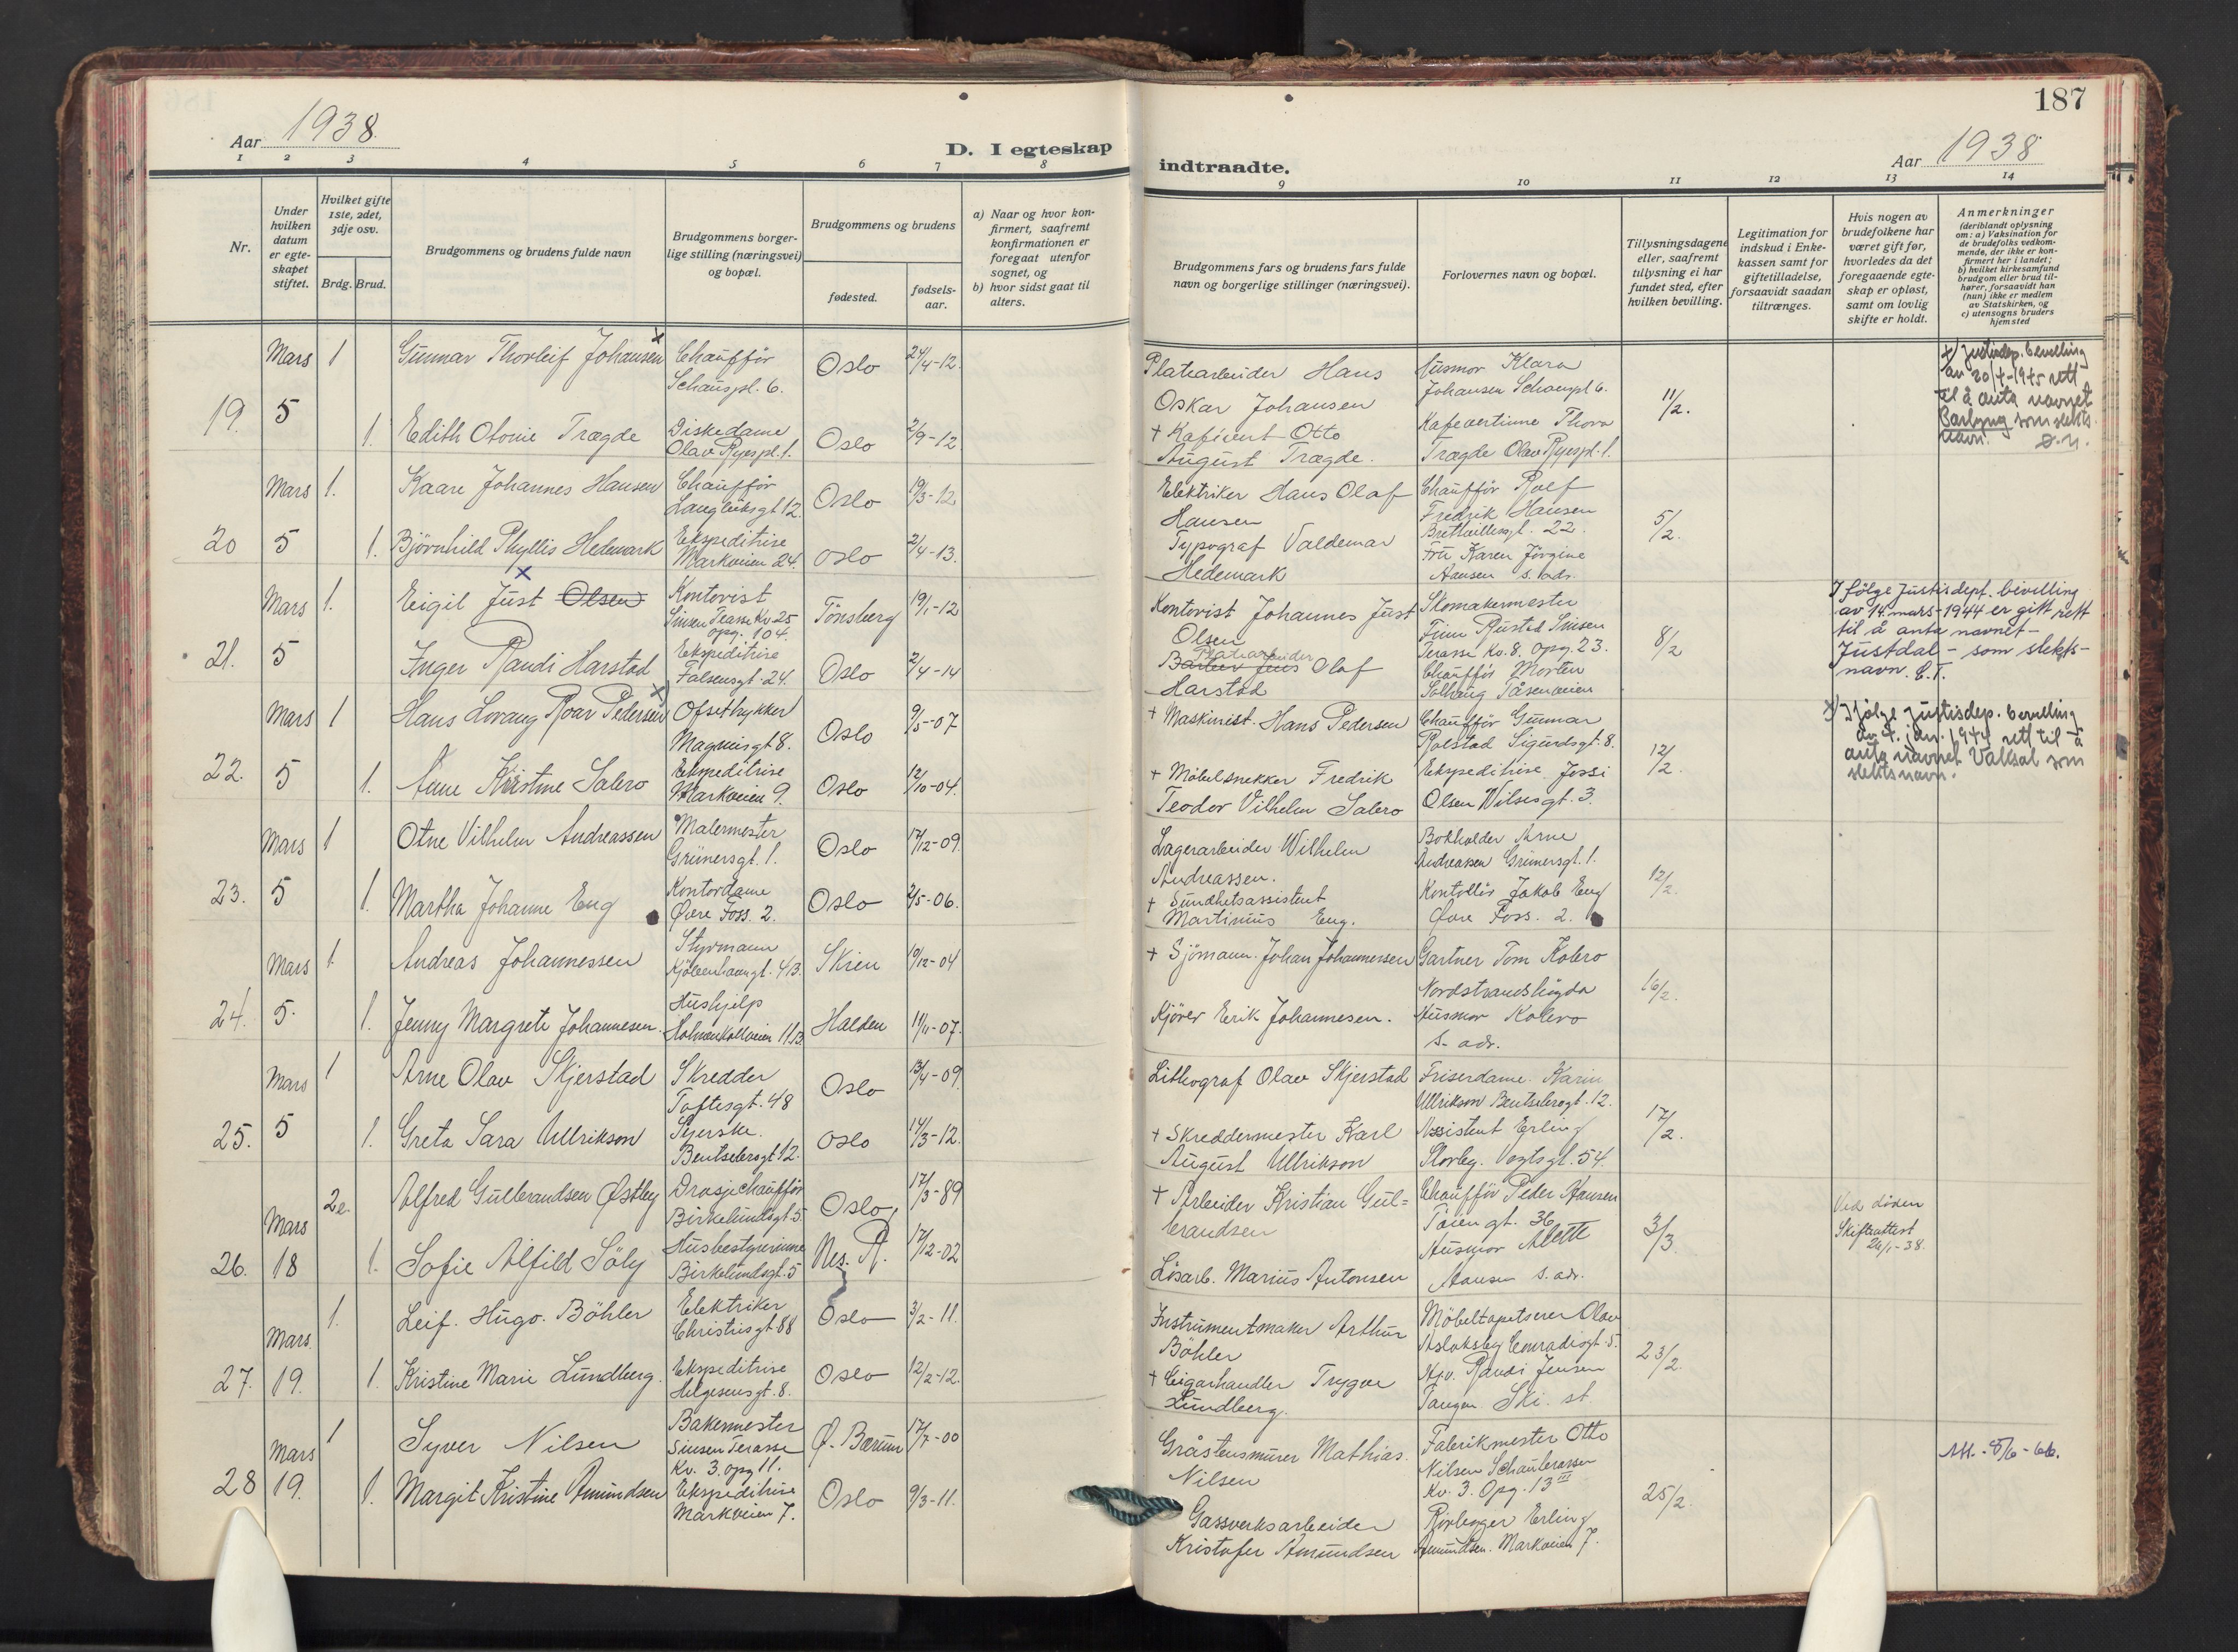 187
Aar 1938.
D. I egteskap
indtraadte.
Aar 1938
1 2 3 4 5 6 7 8
9 10 11 12 13 14
Nr.
Under hvilken datum er egteskapet stiftet.
Hvilket gifte 1ste, 2det, 3dje osv.
Brdg. Brud.
Brudgommens og brudens fulde navn
Brudgommens borgerlige stilling (næringsvei) og bopæl.
Brudgommens og brudens
fødested.
fødselsaar.
a) Naar og hvor konfirmert, saafremt konfirmationen er foregaat utenfor sognet, og
b) hvor sidst gaat til alters.
Brudgommens fars og brudens fars fulde navn og borgerlige stillinger (næringsvei).
Forlovernes navn og bopæl.
Tillysningsdagene eller, saafremt tillysning ei har fundet sted, efter hvilken bevilling.
Legitimation for indskud i Enkekassen samt for giftetilladelse, forsaavidt saadan tiltrænges.
Hvis nogen av brudefolkene har været gift før, hvorledes da det foregaaende egteskap er opløst, samt om lovlig skifte er holdt.
Anmerkninger (deriblandt oplysning om: a) Vaksination for de brudefolks vedkommende, der ikke er konfirmert her i landet; b) hvilket kirkesamfund brudgom eller brud tilhører, forsaavidt han (hun) ikke er medlem av Statskirken, og c) utensogns bruders hjemsted
19. Mars 5
1 Gunnar Thorleif Johansen x
Chauffør
Schauspl. 6.
Oslo 24/4-12.
Platearbeider Hans
Oskar Johansen
Husmor Klara
Johansen Schauspl 6.
11/2.
+) Justisdep. bevilling
av 20/4-1945 rett
til å anta navnet
som slekts-
navn.
1. Edith Otonie Trægde
Diskedame
Olav Ryespl. 1.
Oslo 2/9-12
+ Kafévert Otto
August Trægde.
Kafevertinne Thora
Trægde Olav Ryespl. 1.
20 Mars 5
1. Kaare Johannes Hansen
Chauffør
Langleiksgt 12.
Oslo 19/3-12
Elektriker Hans Olaf
Hansen
Chauffør Rolf
Fredrik Hansen
22.
5/2.
1. Bjørnhild Phyllis Hedemark
Ekspeditrise
Markveien 24.
Oslo 2/4-13.
Typograf Valdemar
Hedemark
Fru Karen Jørgine
Hansen s. adr.
21. Mars 5
1. Eigil Just Olsen x
Kontorist
Sinsen Terasse Kv 25
opg. 104.
Tønsberg 19/1-12
Kontorist Johannes Just
Olsen
Skomakermester
Finn Rustad Sinsen
Terasse Kv. 8. opg. 23.
8/2
I følge Justisdept. bevilling
av 14. mars-1944 er gitt rett
til å anta navnet-
Justdal - som slekts-
navn. E.T.
Inger Randi Harstad
Ekspeditrise
Falsensgt. 24.
Oslo 2/4-14
Platearbeider
Olaf
Harstad
Chauffør Morten
Solhaug Tåsenveien
22. Mars 5
1 Hans Lorang Roar Pedersen x)
Ofsettrykker
Magnusgt 8.
Oslo 9/5-07
+ Maskinist. Hans Pedersen
Chauffør Gunnar
Rolstad Sigurdsgt. 8.
12/2.
x) Ifølge Justisdep. bevilling
av 4. jan. 1944 rett til å
anta navnet Vallsal som
slektsnavn.
1. Anne Kristine Salero
Ekspeditrise
Markveien 9.
Oslo 12/10-04.
+ Møbelsnekker Fredrik
Teodor Vilhelm Salero
Ekspeditrise Jossi
Olsen Wilsesgt. 3.
23. Mars 5
1 Otne Vilhelm Andreassen
Malermester
Grünersgt. 1.
Oslo 17/12-09.
Lagerarbeider Wilhelm
Andreassen.
Bokholder Arne
Andreassen Grünersgt. 1.
12/2.
1. Martha Johanne Eng
Kontordame
Øvre Foss. 2.
Oslo 2/5-06.
+ Sundhetsassistent
Martinius Eng.
Kontollør Jakob Eng
Øvre Foss. 2.
24. Mars 5.
1. Andreas Johannessen
Styrmann
Kjøbenhavngt. 4B.
Skien 10/12-04
+ Sjömann. Johan Johannessen
Gartner Tom Kolero
Nordstrandshögda
16/2.
1. Jenny Margrete Johannesen.
Hushjelp
Holmenkollveien 11B.
Halden 11/11-07.
Kjører Erik Johannesen.
Husmor Kolero
s. adr.
25. Mars 5
1 Arne Olav Skjerstad
Skredder
Toftesgt. 48
Oslo 13/4-09.
Lithograf Olav Skjerstad
Friserdame. Karin
Ullrikson Bentsebrogt. 12.
17/2.
1. Greta Sara Ullrikson
Syerske.
Bentsebrogt 12.
Oslo 14/3-12.
+ Skreddermester Karl
August Ullrikson
Assistent Erling
Storby. Vogtsgt. 54.
26. Mars 18
2e. Alfred Gulbrandsen Østby
Drosjechauffør
Birkelundsgt. 5.
Oslo, 17/3-89
+ Arbeider Kristian Gul-
brandsen
Chauffør Peder Hansen
Tøiengt. 36
3/3.
Ved døden
Skifteattest
24/1-38.
1. Sofie Alfild Söly
Husbestyrerinne
Birkelundsgt. 5
Nes. R. 17/12-02
Løsarb. Marius Antonsen
Husmor Alette
Hansen s. adr.
27. Mars. 19.
1. Leif. Hugo. Böhler
Elektriker
Christiesgt. 88
Oslo 3/2-11.
Instrumentmaker Arthur
Böhler
Möbeltapetserer Olav
Aslaksby Conradisgt. 5.
23/2.
1. Kristine Marie Lundberg.
Ekspeditrise
Helgesensgt. 8.
Oslo 12/2-12.
+ Cigarhandler Trygve
Lundberg.
Randi Jensen
Tangen Ski. st.
28 Mars 19.
1 Syver Nilsen
Bakermester
Sinsen Terasse
Kv. 3. opg 11.
Ø. Bærum 17/7-00
Gråstensmurer Mathias.
Nilsen
Fabrikmester Otto
Nilsen
Kv. 3. Opg. 13 III
25/2.
Att. 8/6-66.
1. Margit Kristine Amundsen
Ekspeditrise
Markveien 7.
Oslo 9/3-11.
Gassverksarbeider
Kristofer Amundsen
Rørlegger Erling
Amundsen. Markveien 7.